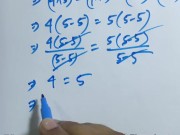 ⇒ 4(5-5) = 5(5-5)
⇒ 4(5-5)/(5-5) = 5(5-5)/5-5
⇒ 4 = 5
⇒